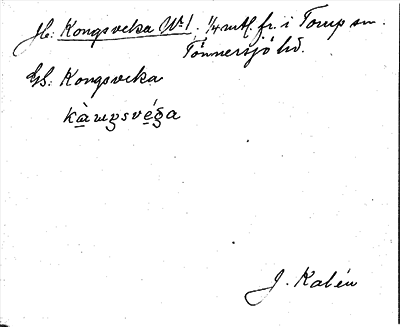 Jb: Kongsveka No 1. 1/4 mtl. fr. i Torup sn.
Tönnersjö hd.
Gs: Kongsveka
kàwgsvéga
J. Kalén